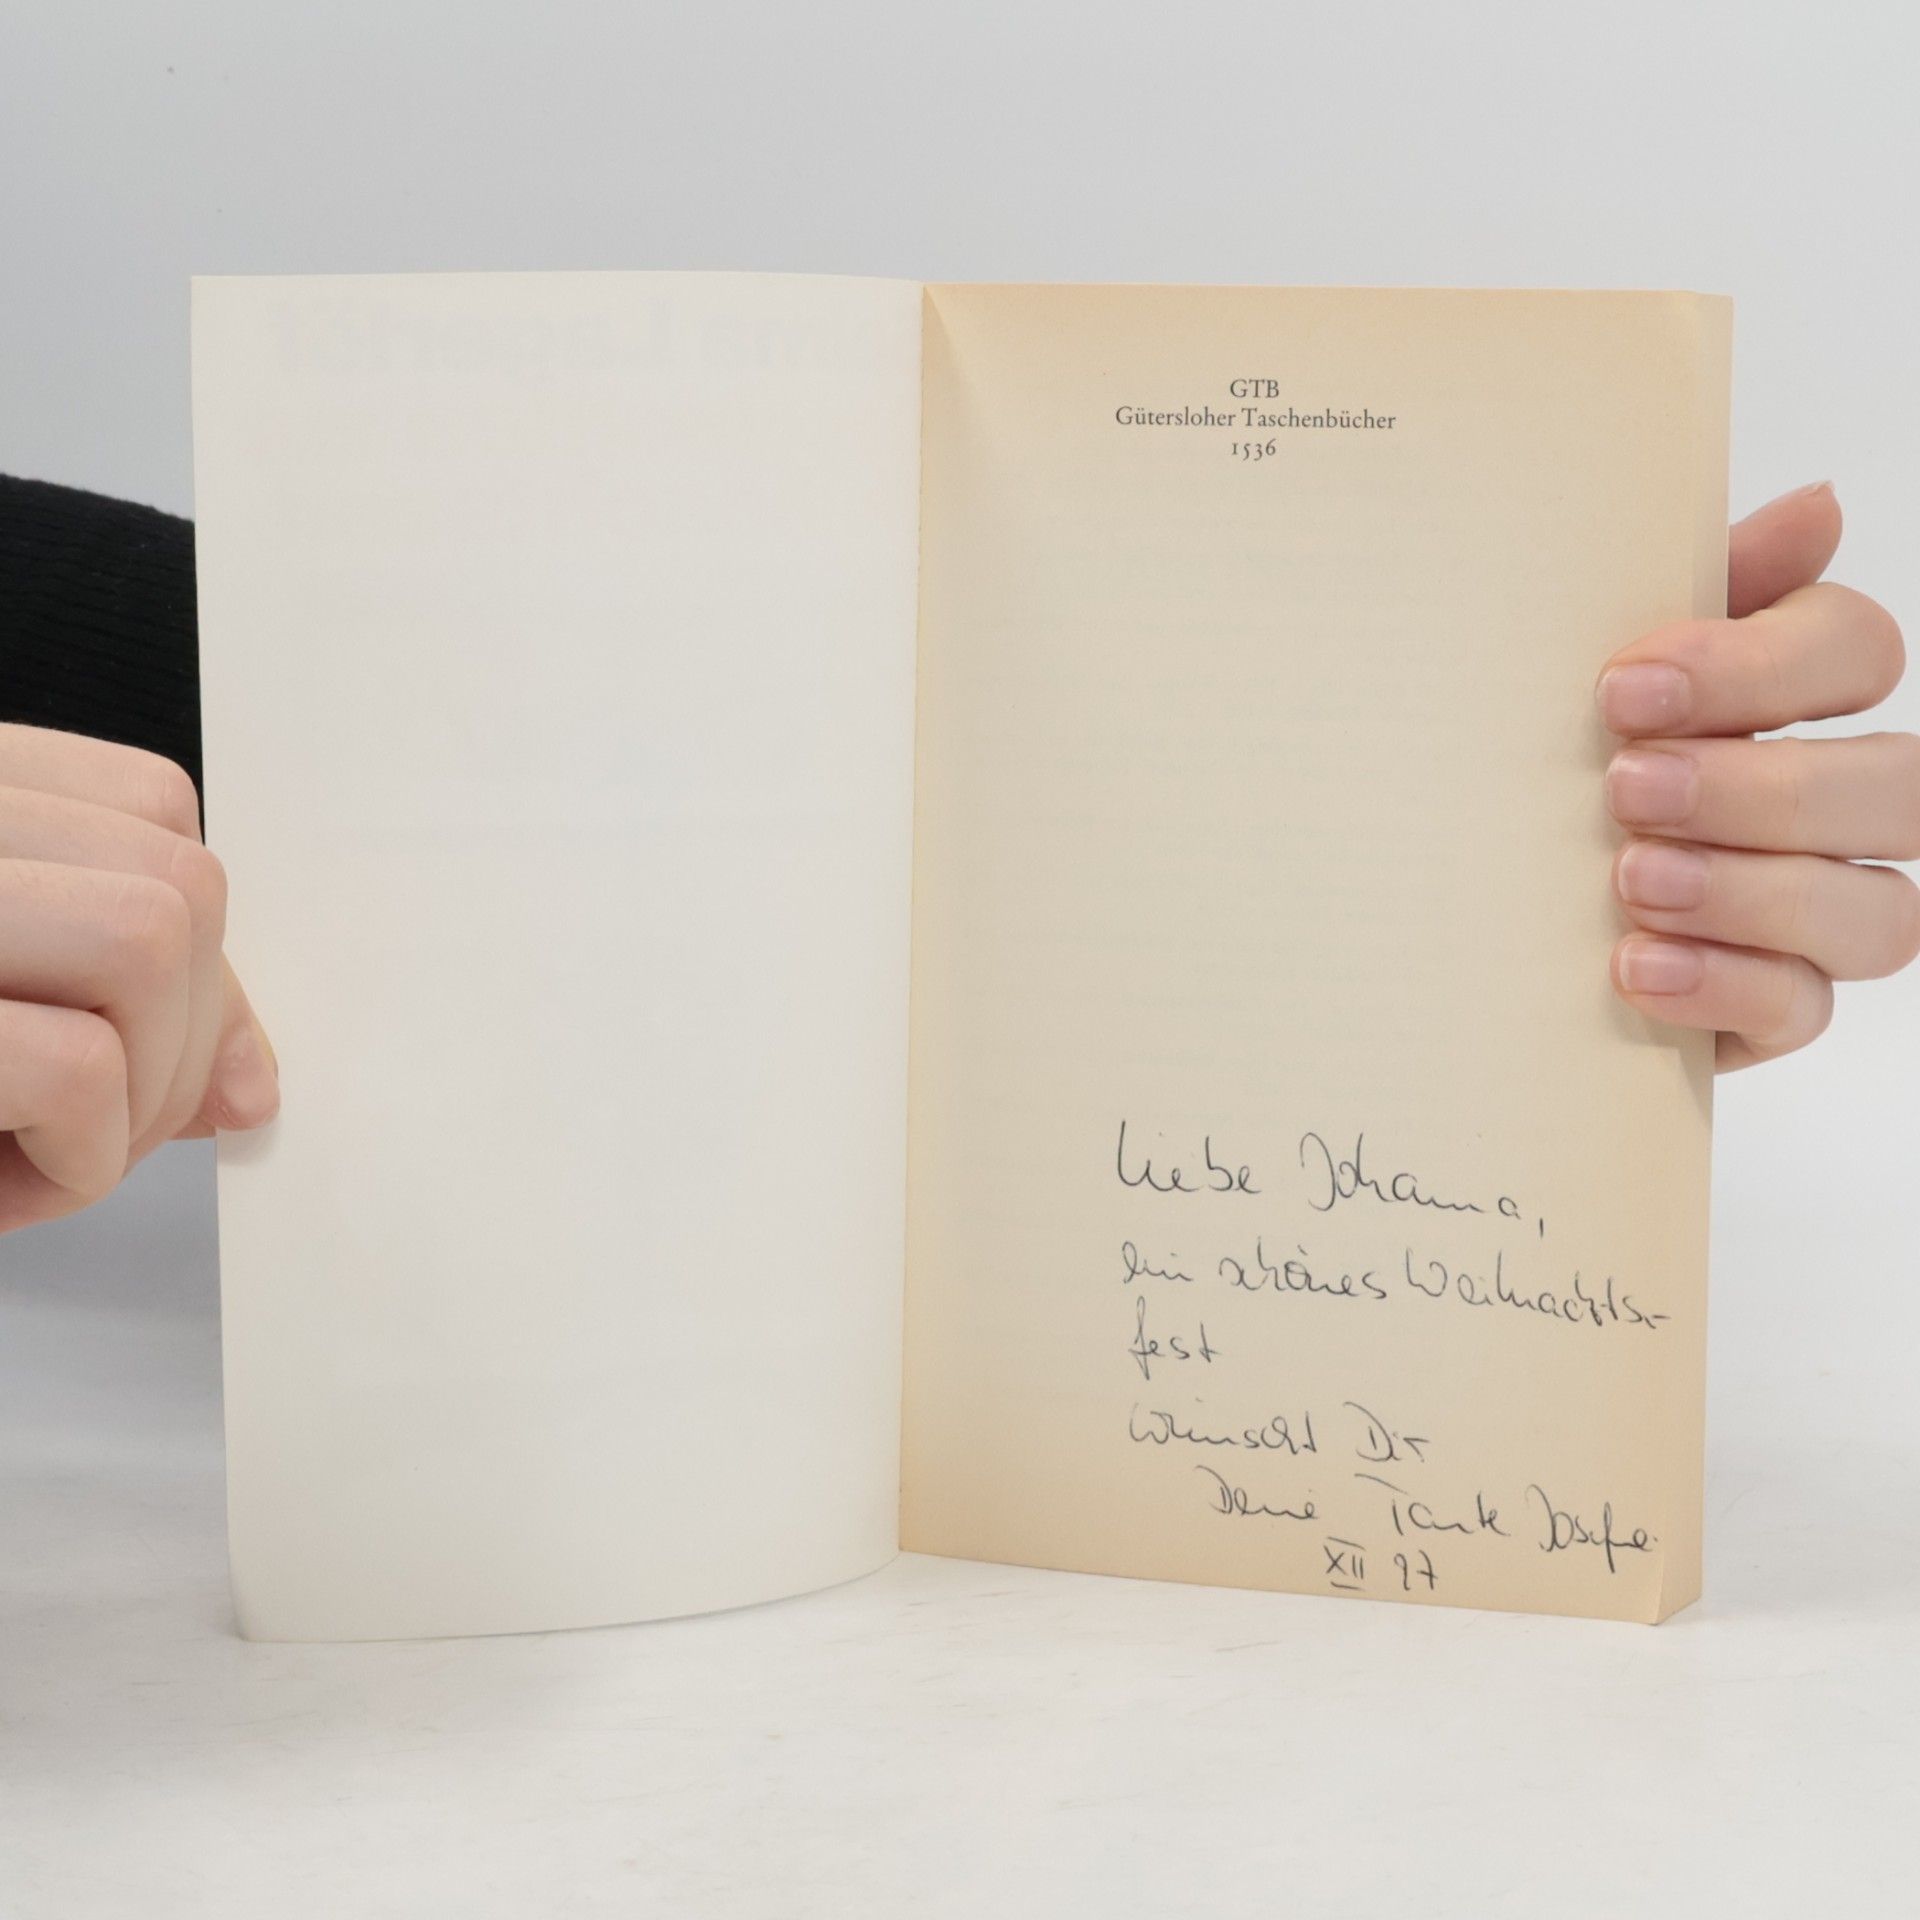 GTB
Gütersloher Taschenbücher
1536
Liebe Johanna,
ein schönes Weihnachts-
fest
wünscht Dir
Deine Tante Josefine
XII 97